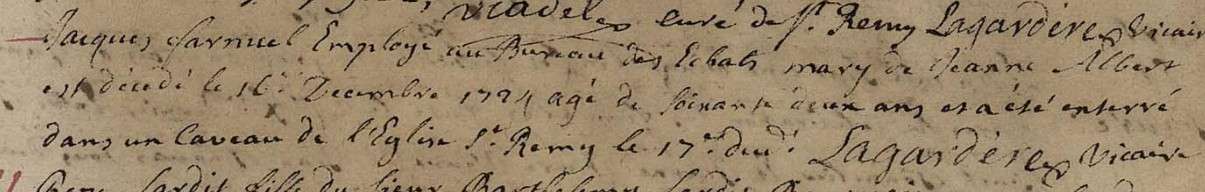 Viadel curé de St. Remy Lagardere Vicaire
Jacques Employé au Bureau des mary de Jeanne Albert
est décédé le 16e Decembre 1724 agé de soixante deux ans et a été enterré
dans un Caveau de l'Eglise St. Remy le 17e. dud. Lagardere Vicaire
fille du sieur Barthelemy